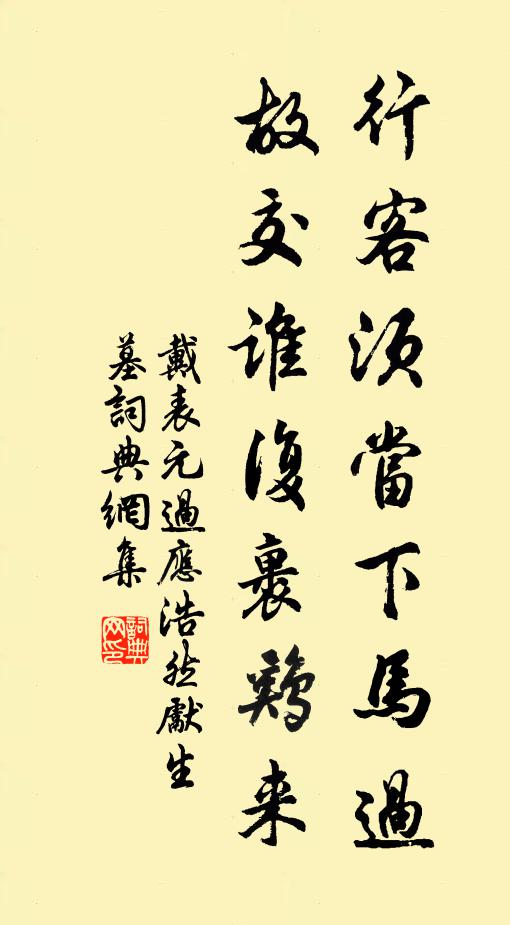 行客須當下馬過
故交誰復裹鷄來
戴表元過應浩然獻生
墓詞典網集
詞典網印